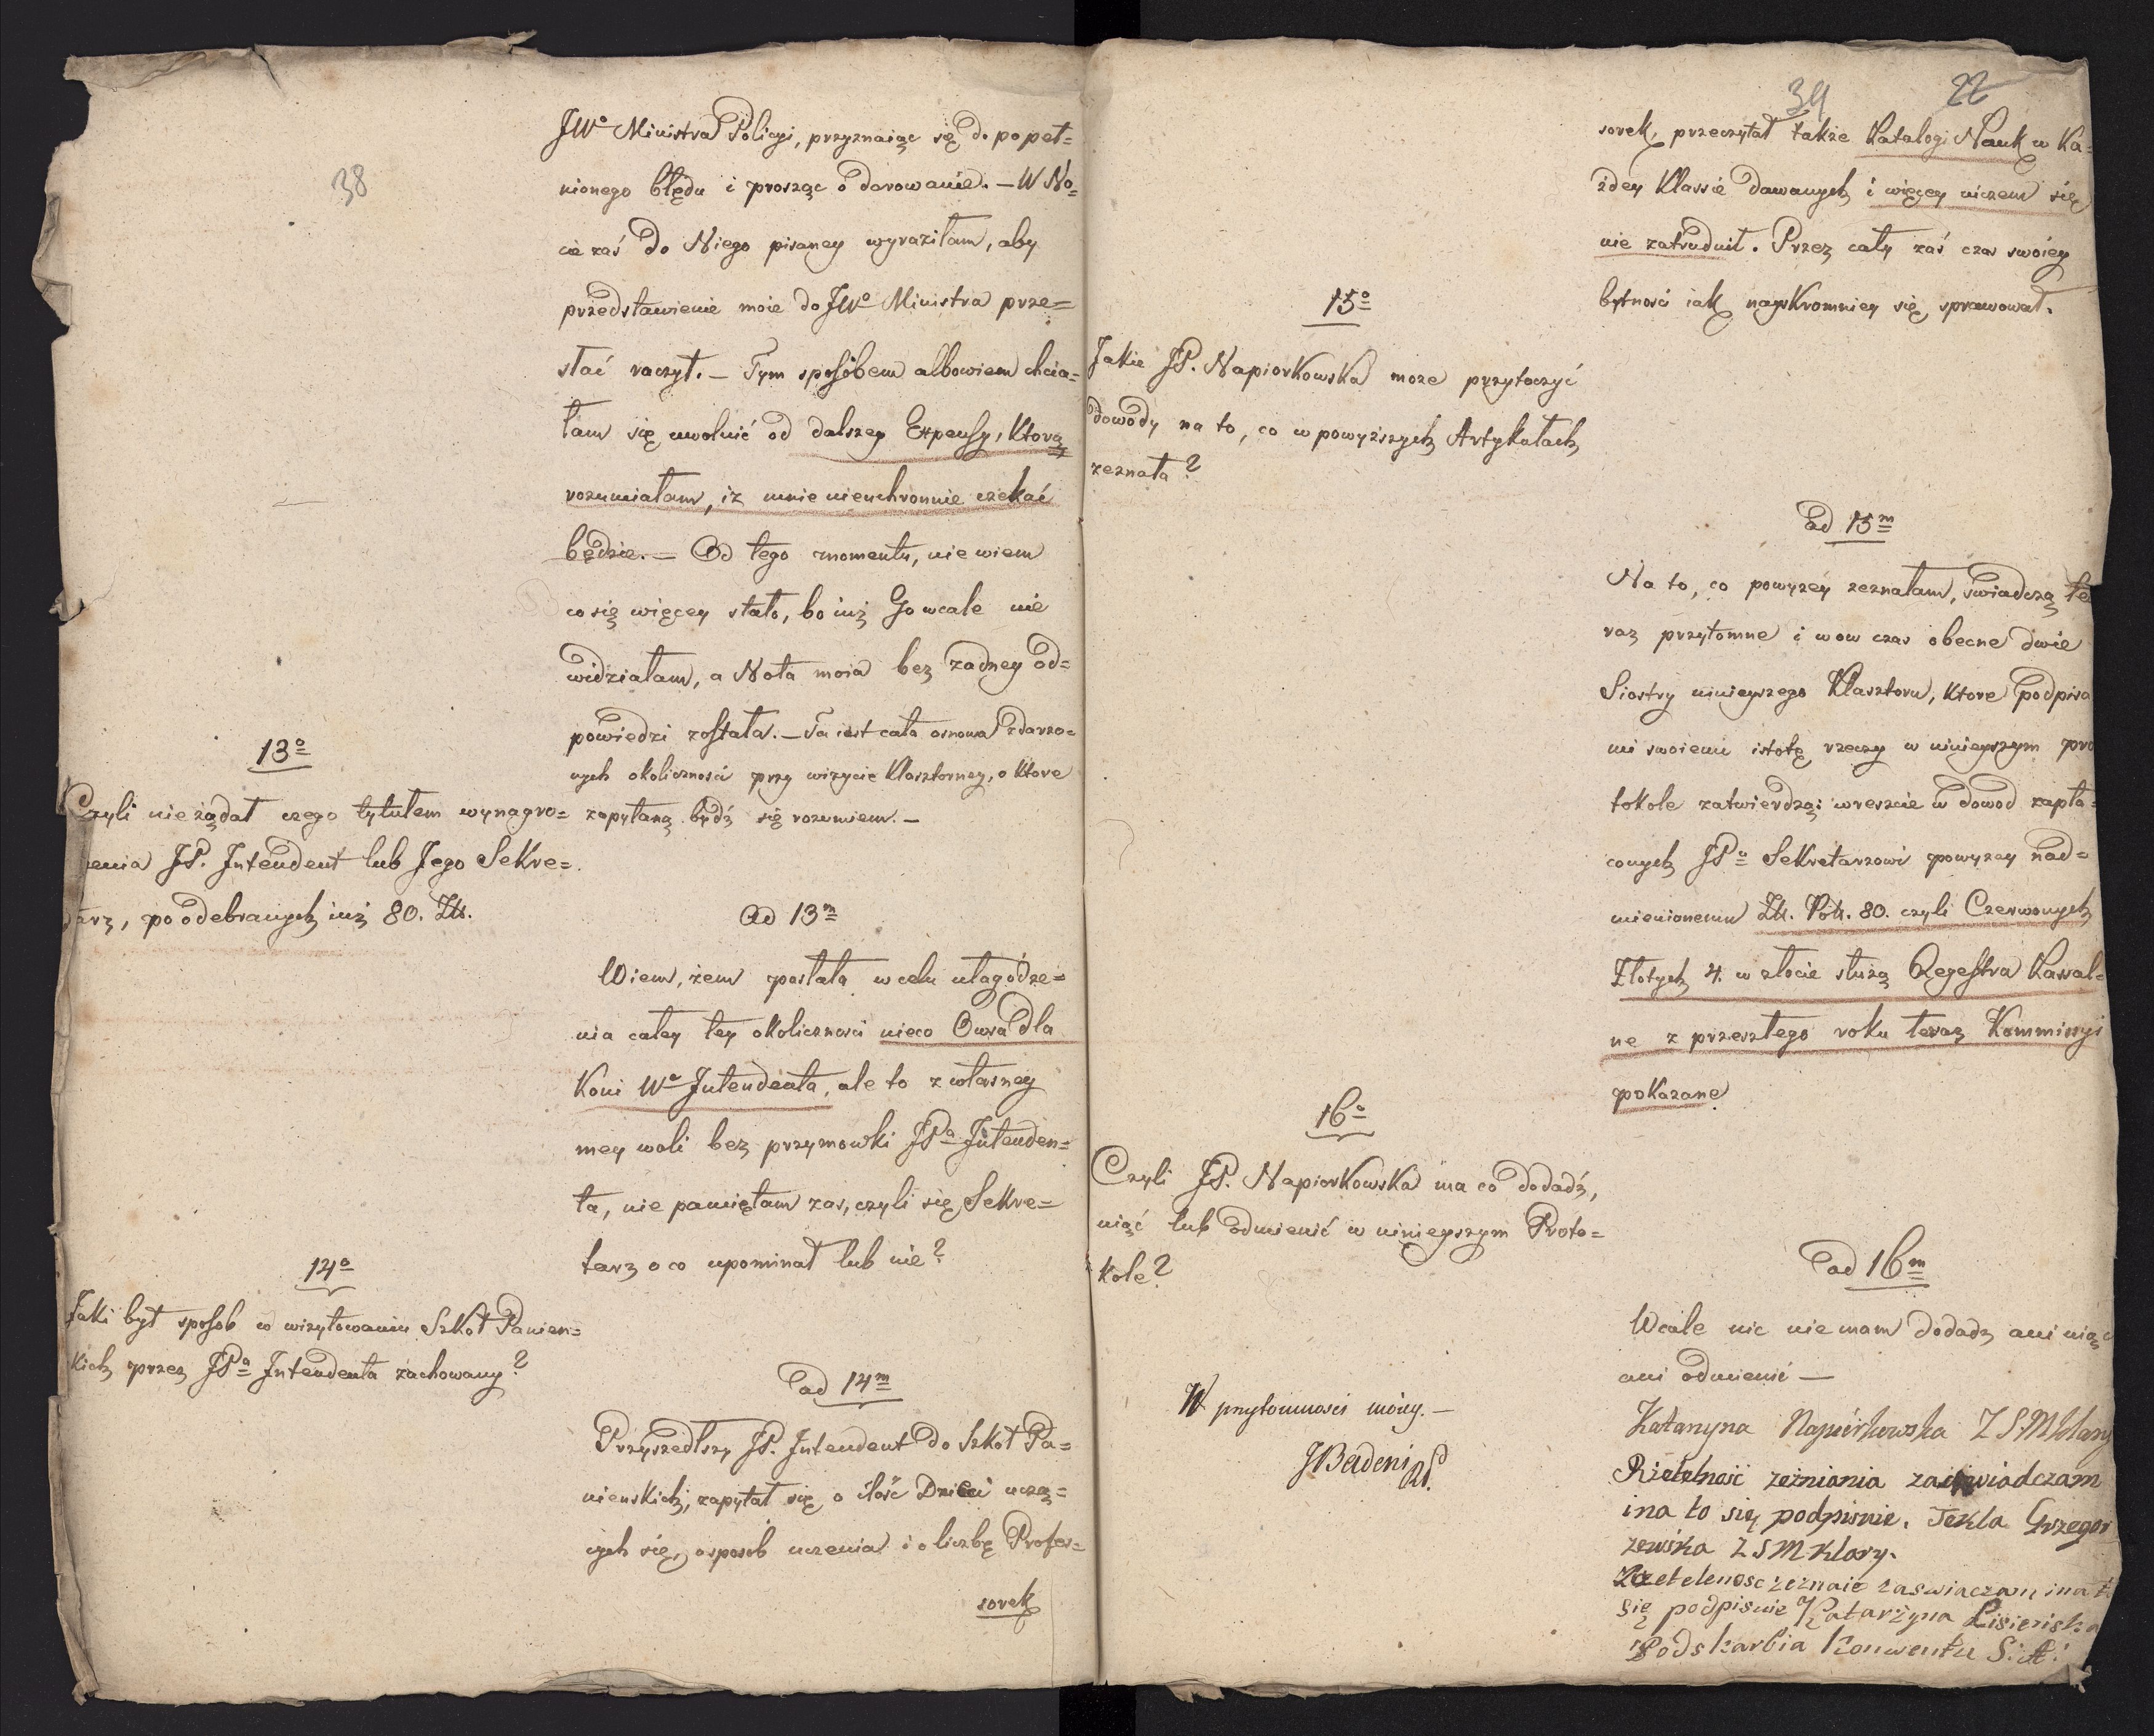 38
JWº Ministra Policyi, przyznaiąc się do popeł=
nionego błędu i prosząc o darowanie. — W No=
cie zaś do Niego pisaney wyraziłam, aby
przedstawienie moie do JWº Ministra prze=
słać raczył. — Tym sposobem albowiem chcia=
łam się uwolnić od dalszey Expensy, ktorą
rozumiałam, iż mnie nieuchronnie czekać
będzie. — Od tego momentu, nie wiem
co się więcey stało, bo iuż Go wcale nie
widziałam, a Nota moia bez żadney od=
powiedzi została. — Ta iest cała osnowa zdarzo=
nych okoliczności przy wizycie Klasztorney, o ktore
zapytaną bydź się rozumiem. —
13º
Czyli nie żądał czego tytułem wynagro=
zenia JP. Intendent lub Jego Sekre=
tarz, po odebranych iuż 80. Zł.
Ad 13m
Wiem, żem posłała w celu ułagodze=
nia całey tey okoliczności nieco Owsa dla
Koni Wº Intendenta, ale to z własney
mey woli bez przymowki JPª Intenden=
ta, nie pamiętam zas, czyli się Sekre=
tarz o co upominał lub nie?
14º
Jaki był sposob w wizytowaniu Szkoł Panien=
kich przez JPª Intendenta zachowany?
ad 14m
Przyszedłszy JP. Intendent do Szkoł Pa=
nienskich, zapytał się o ilość Dzieci uczą=
cych się, o sposob uczenia i o liczbę Profes=
sorek
39 22
sorek, przeczytał także Katalogi Nauk w Ka=
żdey Klassie dawanych i więcey niczem się
nie zatrudnił. Przez cały zaś czas swoiey
bytności iak nayskromniey się sprawował.
15º
Jakie JP. Napiorkowska może przytoczyć
dowody na to, co w powyższych Artykułach
zeznała?
ad 15m
Na to, co powyżey zeznałam, świadczą te
raz przytomne i wow czas obecne dwie
Siostry ninieyszego Klasztoru, ktore podpisa
mi swoiemi istotę rzeczy w ninieyszym pro
tokole zatwierdzą; wreszcie w dowod zapła=
conych JPº Sekretarzowi powyżey nad=
mienionemu Zł. Pol. 80. czyli Czerwonych
Złotych 4. w złocie służą Regestra Kassal=
ne z przeszłego roku teraz Kommissyi
pokazane
16º
Czyli JP. Napiorkowska ma co dodadź,
uiąć lub odmienić w ninieyszym Proto=
kole?
ad 16m
Wcale nic nie mam dodadz ani uiąć
ani odmienić —
W przytomności moiey. —
JBadeni
Katarzyna Napiórkowska Z S M Klary
Rietelność zeżniania zaświadczam
i na to się podpisuie. Tekla Grzegor
zewska Z S M Klary.
Rzetelenosc zeznaie zaswiaczam i na t
się podpisuie Katarżyna Lisienska
Podskarbia Konwentu